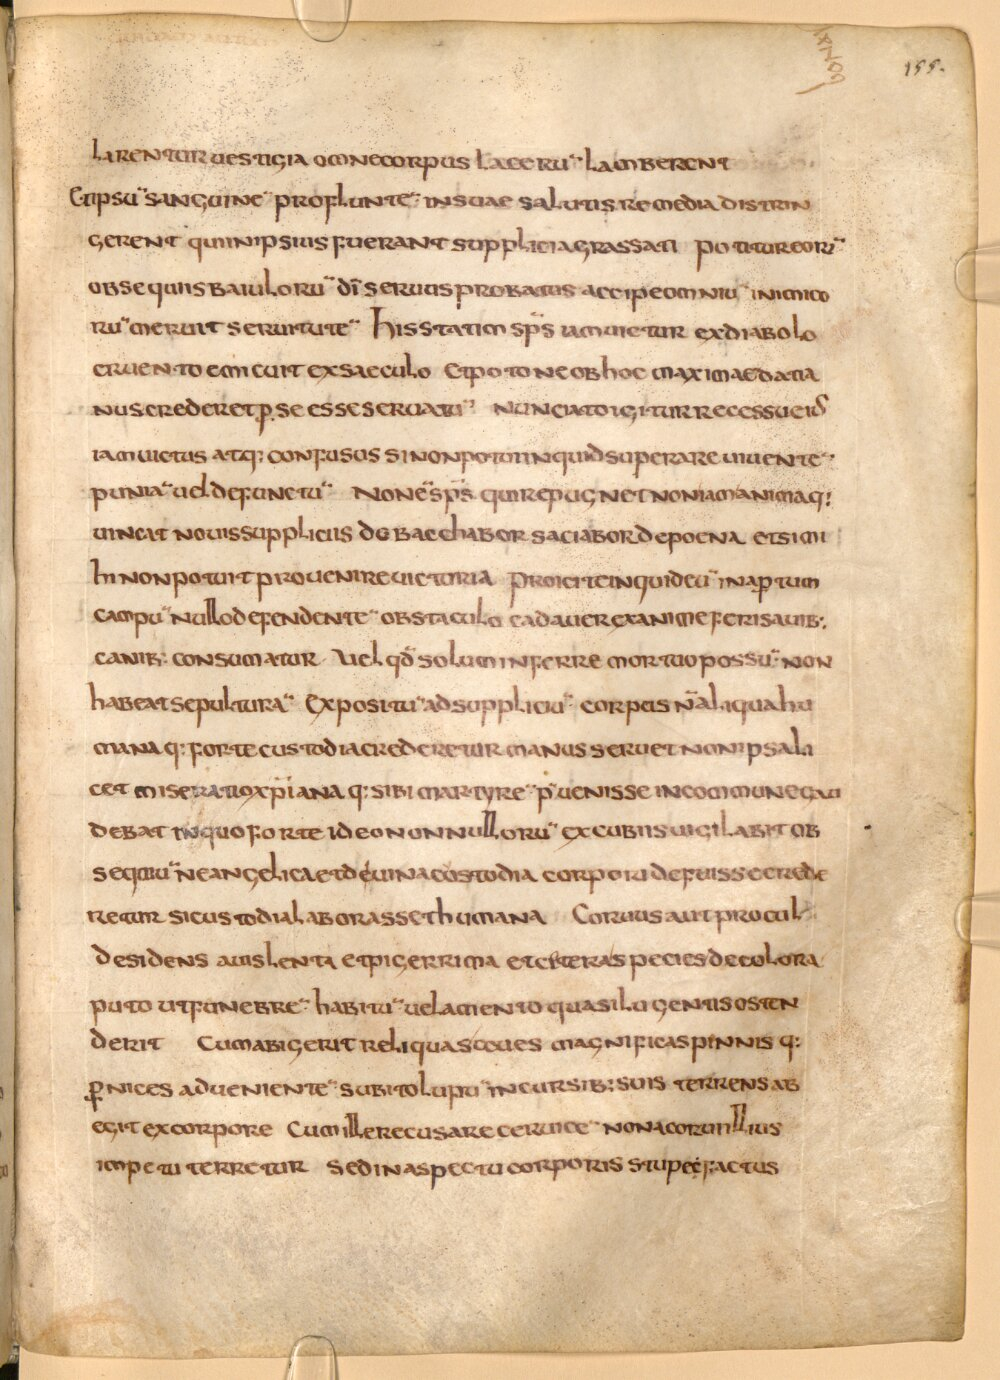 155.
larentur uestigia omnecorpus laceru̅ lamberent
Etipsu̅ sanguine̅ profluente̅ insuae salutis remedia distrin
gerent quiinipsius fuerant suppliciagrassati potitureoru̅
obsequiis baiuloru̅ dı̅ seruus probatus accipeomniu̅ inimico
ru̅ meruit seruitute̅ His statim sp̅s iamuictur exdiabolo
cruento emicuit exsaeculo Etpotone obhoc maximaedatia
nus crederet p̱se esseseruatu̅ Nunciatoigiturrecessueiꝰ
iamuictus atq: confusus sinonpotui inquid superare uiuente̅
punia̅ uel defunctu̅ None̅ sp̅s quirepugnet noniamanimaq:
uincat nouissuppliciis debacchabor saciabordepoena etsimi
hi nonpotuit prouenireuictoria Proiciteinquideu̅ inap̱tum
campu̅ nullodefendente̅ obstaculo cadauerexanimeferisauib:
canib: consumatur Uel qd̅ soluminferre mortuopossu̅ non
habeatsepultura̅ Expositu̅ adsuppliciu̅ corpus n̅aliquahu
manaq: fortecustodiacrederetur manus seruet nonipsali
cet miseratioxp̅iana q: sibi martyre̅ p̅uenisse incommunegau
debat inquoforte ideononnulloru̅ excubiisuigilabitob
sequiu̅ neangelicaetdiuinacustodia corporidefuissecrede
retur sicustodialaborassethumana Coruus aut procul
desidens auislenta etpigerrima etceteraspeciesdecolora
puto utfunebre̅ habitu̅ uelamento quasilugentisosten
derit Cumabigerit reliquascoues magnificaspinnis q:
p̱nices adueniente̅ subitolupu̅ incursib: suis terrensab
egit excorpore Cumillerecusare ceruice̅ nonacoruillius
impetu terretur sedinaspectucorporis stupefactus